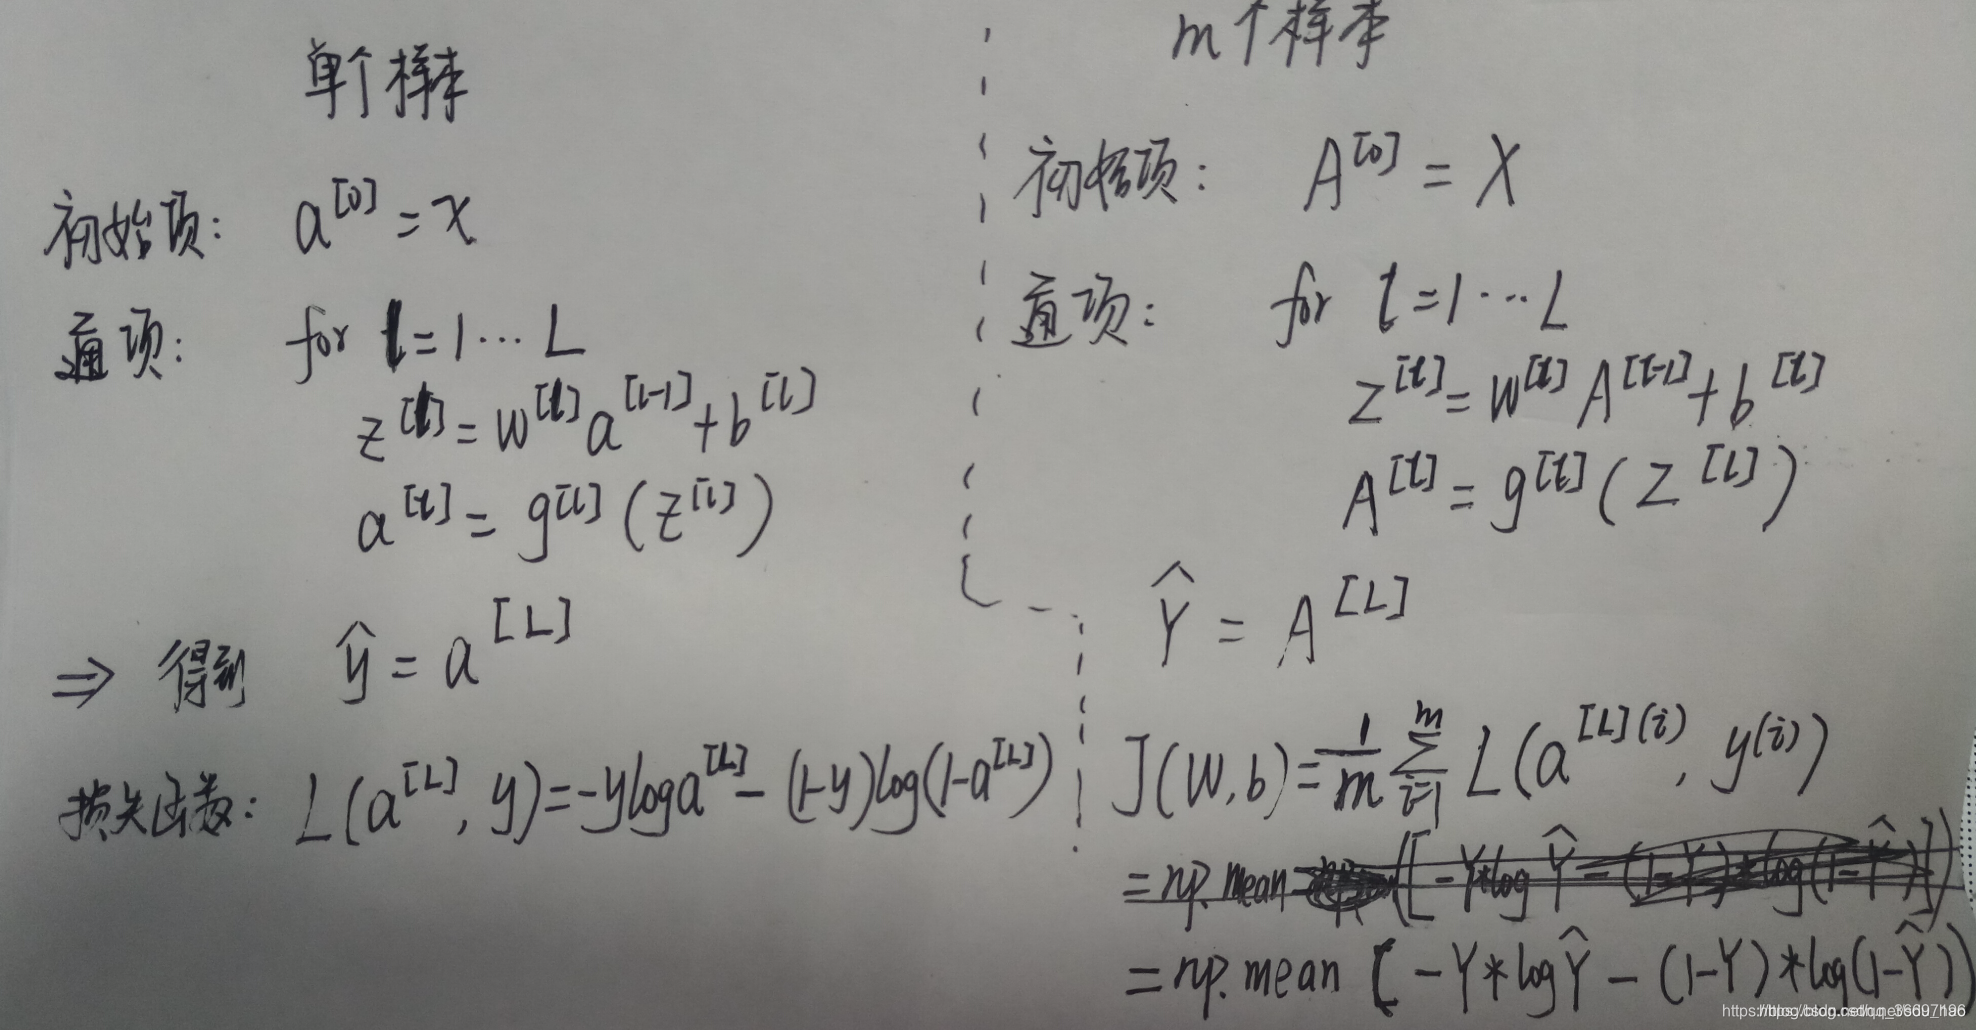 单个样本
初始项: a^[0] = x
通项: for l=1...L
z^[l] = w^[l] a^[l-1] + b^[l]
a^[l] = g^[l] (z^[l])
⇒ 得到 ŷ = a^[L]
损失函数: L(a^[L], y) = -yloga^[L] - (1-y)log(1-a^[L])
m个样本
初始项: A^[0] = X
通项: for l=1...L
Z^[l] = W^[l] A^[l-1] + b^[l]
A^[l] = g^[l] (Z^[l])
Ŷ = A^[L]
J(W,b) = 1/m ∑_{i=1}^{m} L(a^[L](i), y^(i))
= np.mean ([-Y*logŶ - (1-Y)*log(1-Ŷ)])
= np.mean (-Y*logŶ - (1-Y)*log(1-Ŷ))